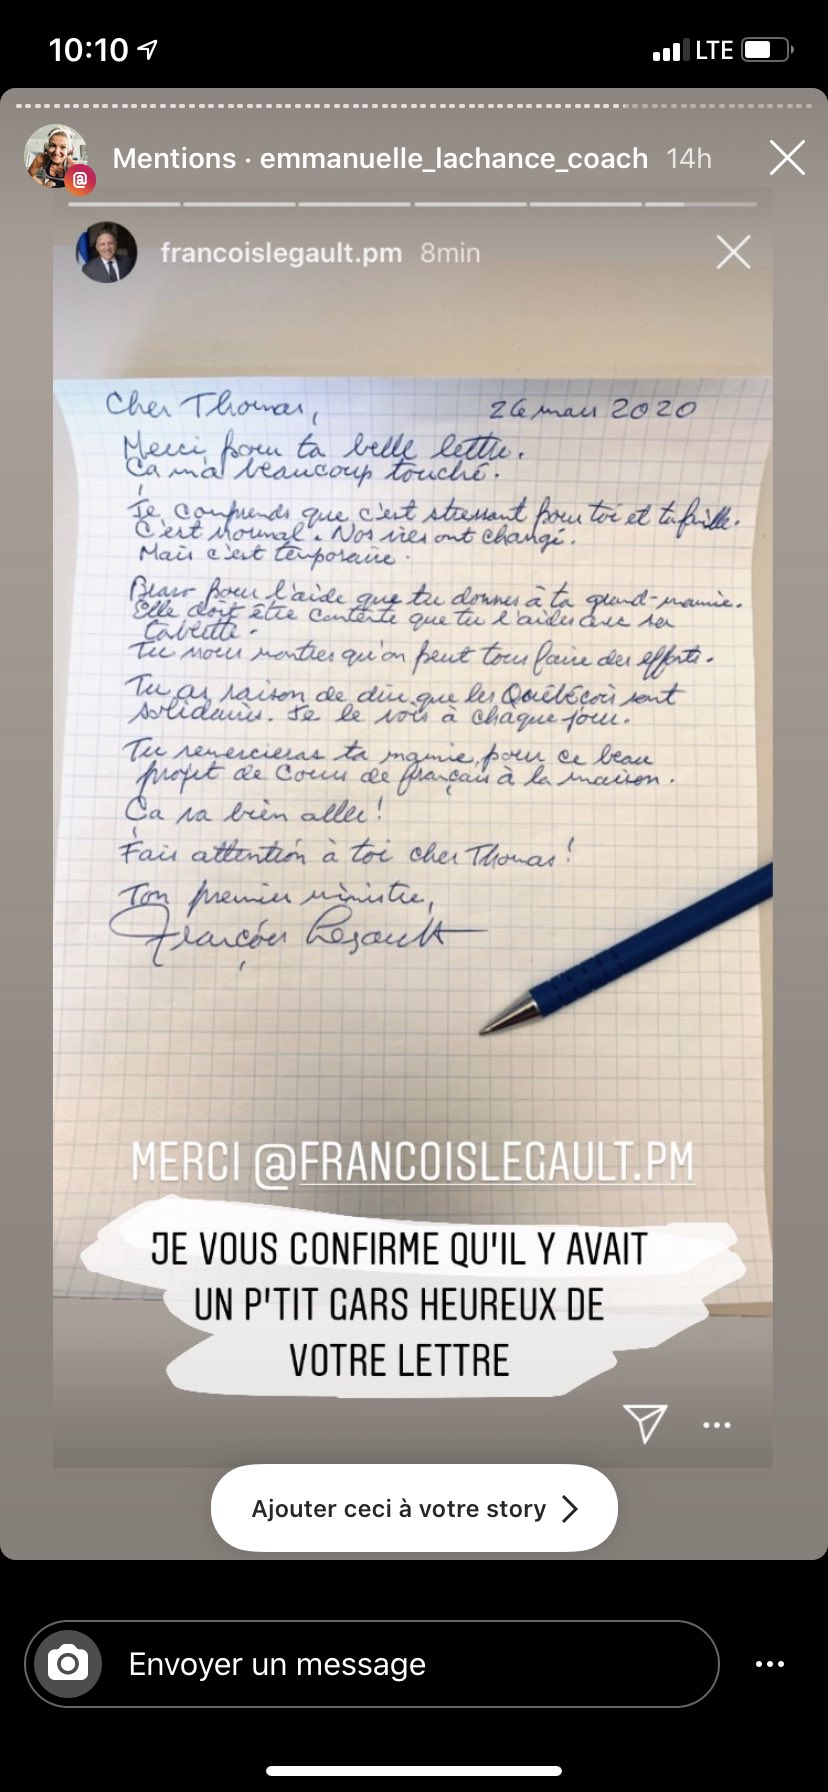 10:10
LTE
Mentions · emmanuelle_lachance_coach 14h
francoislegault.pm 8min
Cher Thomas, 26 mars 2020
Merci pour ta belle lettre.
Ça m'a beaucoup touché.
Je comprends que c'est stressant pour toi et ta famille.
C'est normal. Nos vies ont changé.
Mais c'est temporaire.
Bravo pour l'aide que tu donnes à ta grand-mamie.
Elle doit être contente que tu l'aides avec sa
tablette.
Tu nous montres qu'on peut tous faire des efforts.
Tu as raison de dire que les Québécois sont
solidaires. Je le vois à chaque jour.
Tu remercieras ta mamie, pour ce beau
projet de cours de français à la maison.
Ça va bien aller!
Fais attention à toi cher Thomas!
Ton premier ministre,
François Legault
MERCI @FRANCOISLEGAULT.PM
JE VOUS CONFIRME QU'IL Y AVAIT
UN P'TIT GARS HEUREUX DE
VOTRE LETTRE
Ajouter ceci à votre story
Envoyer un message